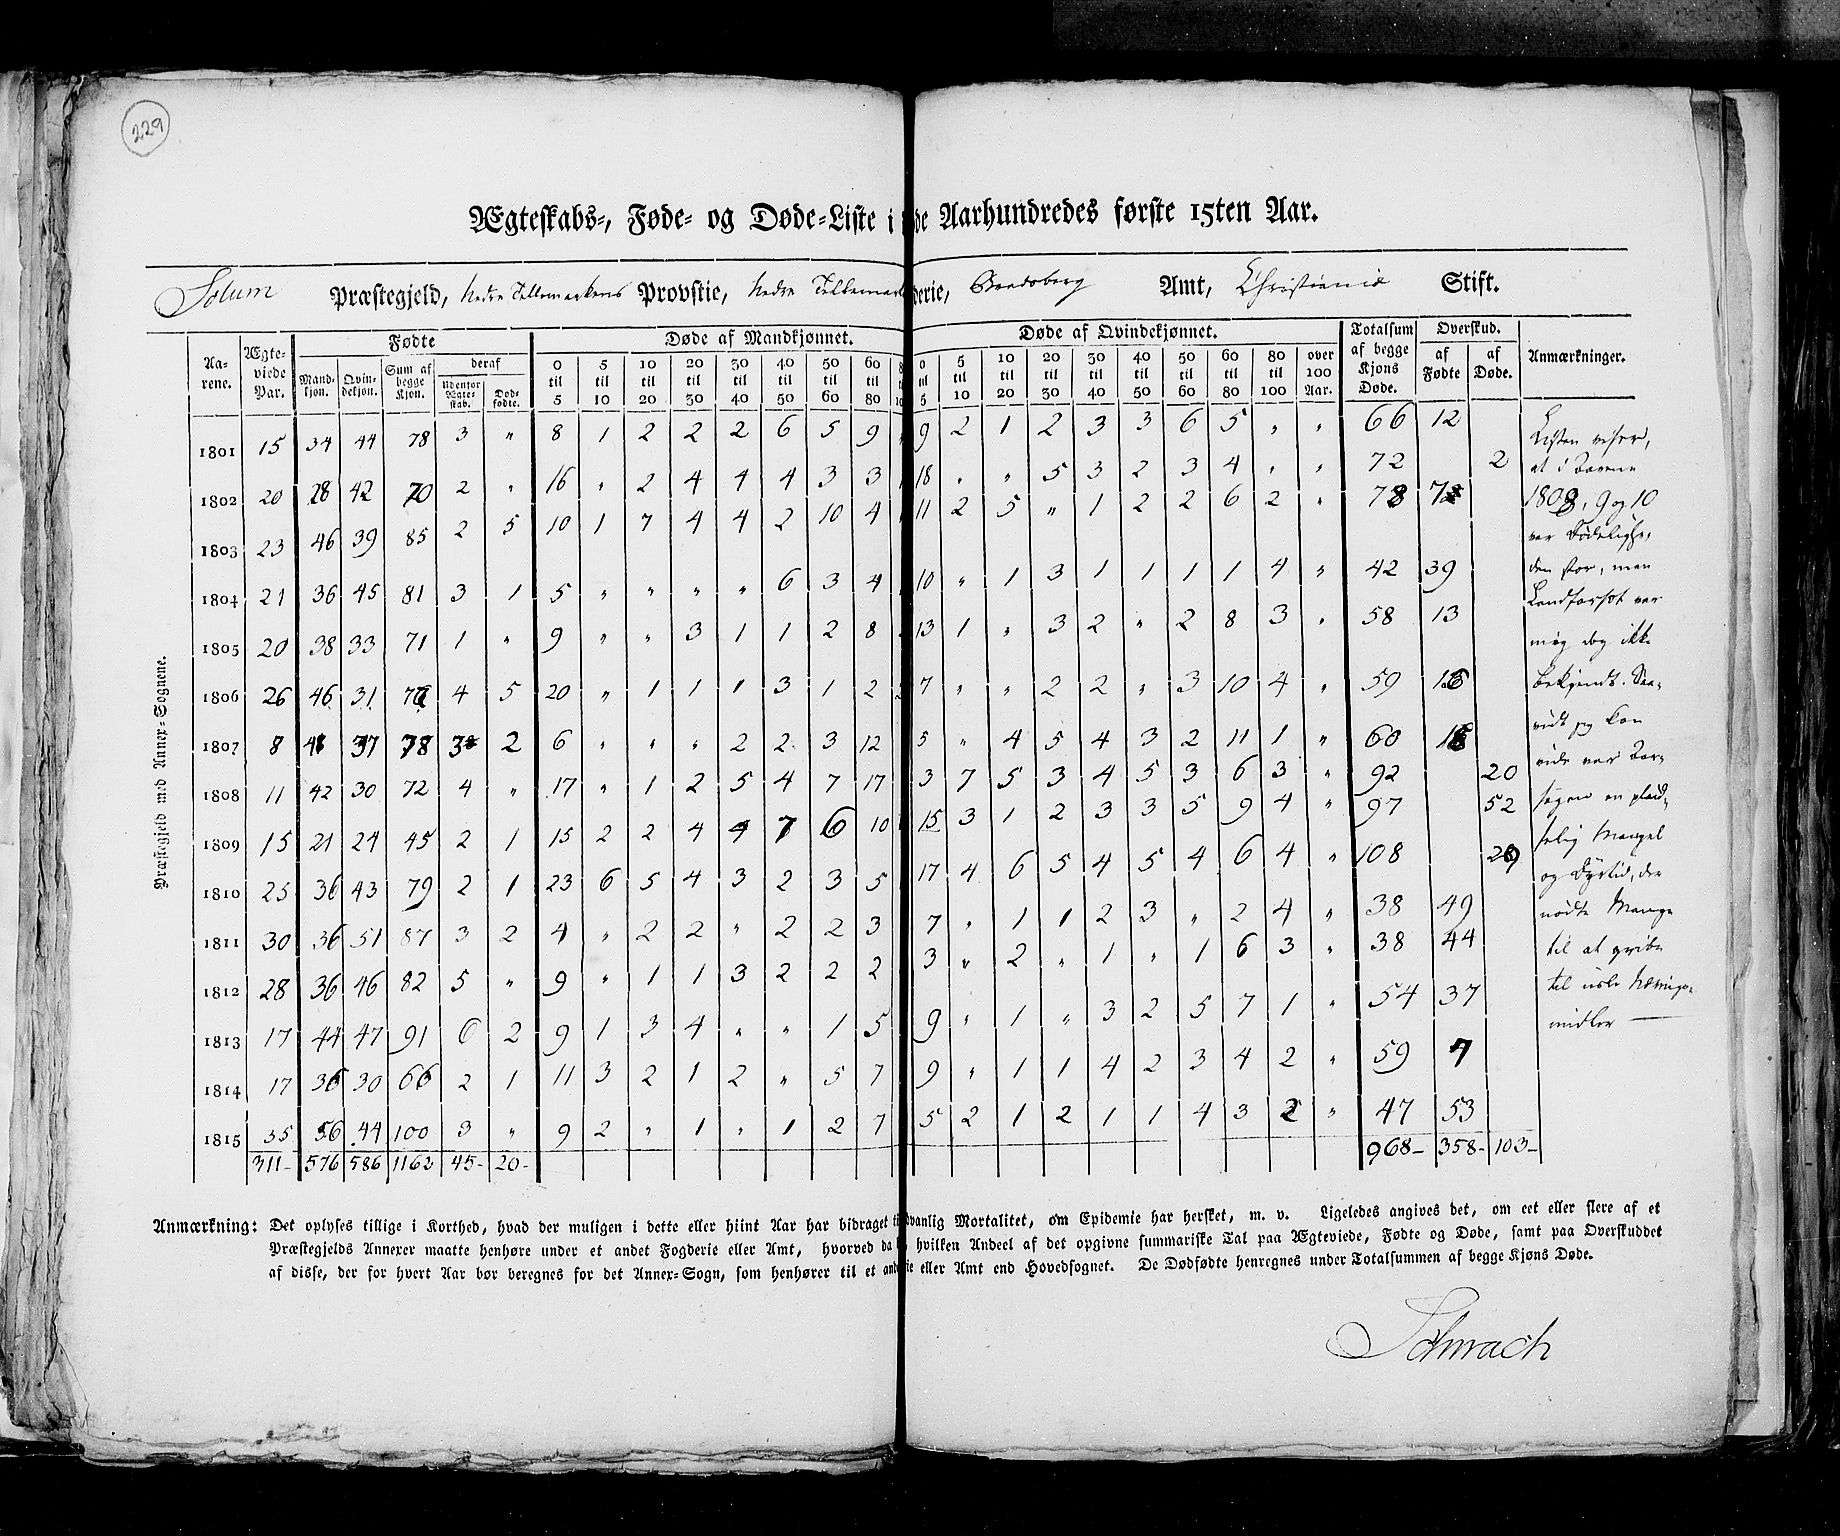 229
Ægteskabs-, Føde- og Døde-Liste i de Aarhundredes første 15ten Aar.
Solum Præstegjeld, Nedre Tellemarkens Provstie, Nedre Tellemar derie, Bradsberg Amt, Christiania Stift.
Præstegjeld med Annex-Sognene.
Aarene. Ægteviede Par. Fødte Døde af Mandkjønnet. Døde af Qvindekjønnet. Totalsum af begge Kjøns Døde. Overskud. Anmærkninger.
Mandkjøn. Qvindekjøn. Sum af begge Kjøn. deraf af Fødte af Døde.
Udenfor Ægteskab. Dødfødte.
0 til 5 5 til 10 10 til 20 20 til 30 30 til 40 40 til 50 50 til 60 60 til 80 0 til 5 5 til 10 10 til 20 20 til 30 30 til 40 40 til 50 50 til 60 60 til 80 80 til 100 over 100 Aar.
1801 15 34 44 78 3 " 8 1 2 2 2 6 5 9 9 2 1 2 3 3 6 5 " " 66 12
1802 20 28 42 70 2 " 16 " 2 4 4 4 3 3 18 " " 5 3 2 3 4 " " 72 2
1803 23 46 39 85 2 5 10 1 7 4 4 2 10 4 11 2 5 " 1 2 2 6 2 " 78 7
1804 21 36 45 81 3 1 5 " " " " 6 3 4 10 " 1 3 1 1 1 1 4 " 42 39
1805 20 38 33 71 1 " 9 " " 3 1 1 2 8 13 1 " 3 2 " 2 8 3 " 58 13
1806 26 46 31 4 5 20 " 1 1 1 3 1 2 7 " " 2 2 " 3 10 4 " 59
1807 8 41 37 78 3 2 6 " " " 2 2 3 12 5 " 4 5 4 3 2 11 1 " 60
1808 11 42 30 72 4 " 17 " 1 2 5 4 7 17 3 7 5 3 4 5 3 6 3 " 92 20
1809 15 21 24 45 2 1 15 2 2 4 4 7 6 10 15 3 1 2 3 3 5 9 4 " 97 52
1810 25 36 43 79 2 1 23 6 5 4 3 2 3 5 17 4 6 5 4 5 4 6 4 " 108 29
1811 30 36 51 87 3 2 4 " 2 2 " 2 2 3 7 " 1 1 2 3 " 2 4 " 38 49
1812 28 36 46 82 5 " 9 " 1 1 3 2 2 2 3 " 2 " 1 " 1 6 3 " 38 44
1813 17 44 47 91 6 2 9 1 3 4 " " 1 5 9 " 1 " 3 2 5 7 1 " 54 37
1814 17 36 30 66 2 1 11 3 2 1 2 " 5 7 9 " 1 1 4 2 3 4 2 " 59 7
1815 35 56 44 100 3 " 9 2 " 1 " 1 2 7 5 2 1 2 1 1 4 3 2 " 47 53
311- 576 586 1162 45- 20- 968- 358- 103-
Listen viser,
at i Aarene
1808, 9 og 10
var Dødelighe,
den stor, men
Landfarsot var
mig dog ikke
bekjendt. Saa,
vidt jeg kan
vide var Aar,
sagen en
Mangel
og Dyrtid, der
nødte Mange
til at gribe
til usle Nærings,
midler —
Anmærkning: Det oplyses tillige i Korthed, hvad der muligen i dette eller hiint Aar har bidraget til vanlig Mortalitet, om Epidemie har hersket, m. v. Ligeledes angives det, om eet eller flere af et
Præstegjelds Annexer maatte henhøre under et andet Fogderie eller Amt, hvorved da hvilken Andeel af det opgivne summariske Tal paa Ægteviede, Fødte og Døde, samt paa Overskuddet
af disse, der for hvert Aar bør beregnes for det Annex-Sogn, som henhører til et ande eller Amt end Hovedsognet. De Dødfødte henregnes under Totalsummen af begge Kjøns Døde.
Schwach